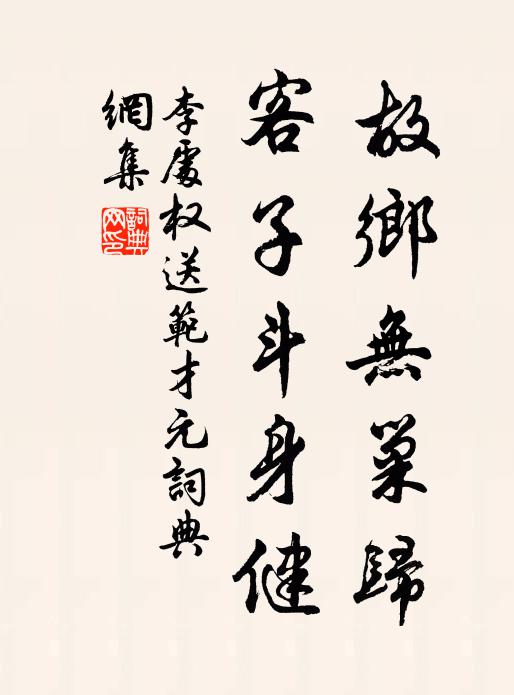 故鄉無巢歸
客子斗身健
李處权送範才元詞典
網集
詞典網印